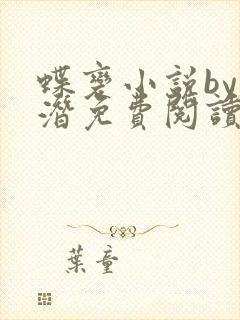 蝶变小说by
潜免费阅读
葉童